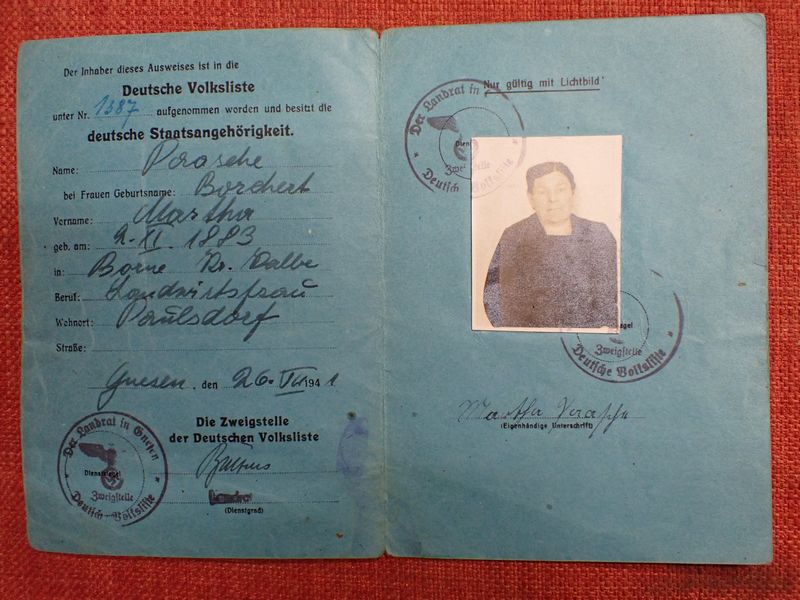 Der Inhaber dieses Ausweises ist in die
Deutsche Volksliste
unter Nr. 1387 aufgenommen worden und besitzt die
deutsche Staatsangehörigkeit.
Name: Prasche
bei Frauen Geburtsname: Borchert
Vorname: Martha
geb. am: 2. XI. 1883
in: Borne Kr. Calbe
Beruf: Landwirtsfrau
Wohnort: Paulsdorf
Straße:
Gnesen, den 26. 1941
Die Zweigstelle
der Deutschen Volksliste
(Dienstgrad)
Der Landrat in Gnesen
Dienstsiegel
Zweigstelle
Deutsche Volksliste
Nur gültig mit Lichtbild
Der Landrat in
Zweigstelle
Deutsche Volksliste
Zweigstelle
Deutsche Volksliste
Martha
(Eigenhändige Unterschrift)